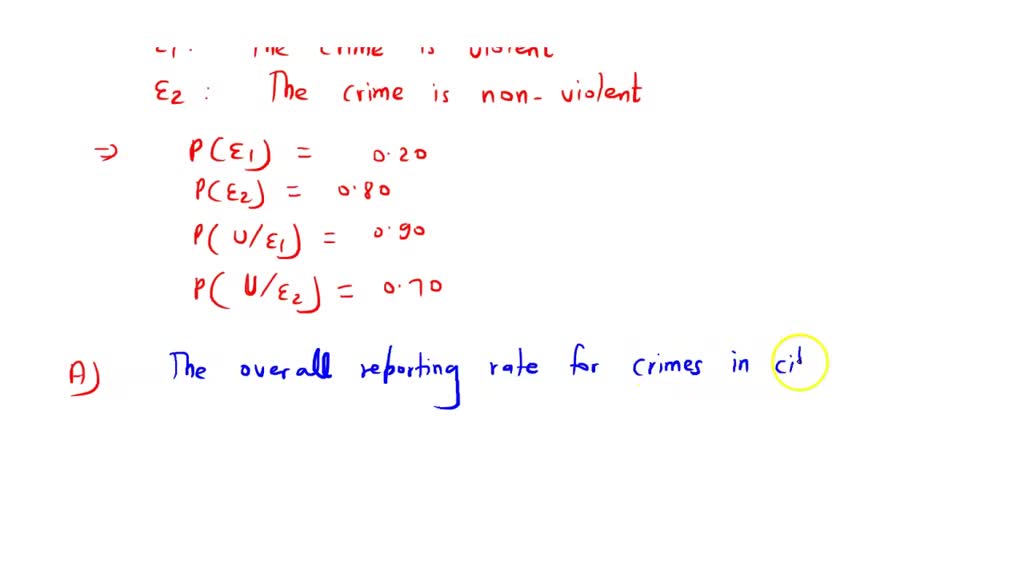 E1 : The crime is violent
E2 : The crime is non-violent
⇒ P(E1) = 0.20
P(E2) = 0.80
P(U/E1) = 0.90
P(U/E2) = 0.70
A) The overall reporting rate for crimes in cit